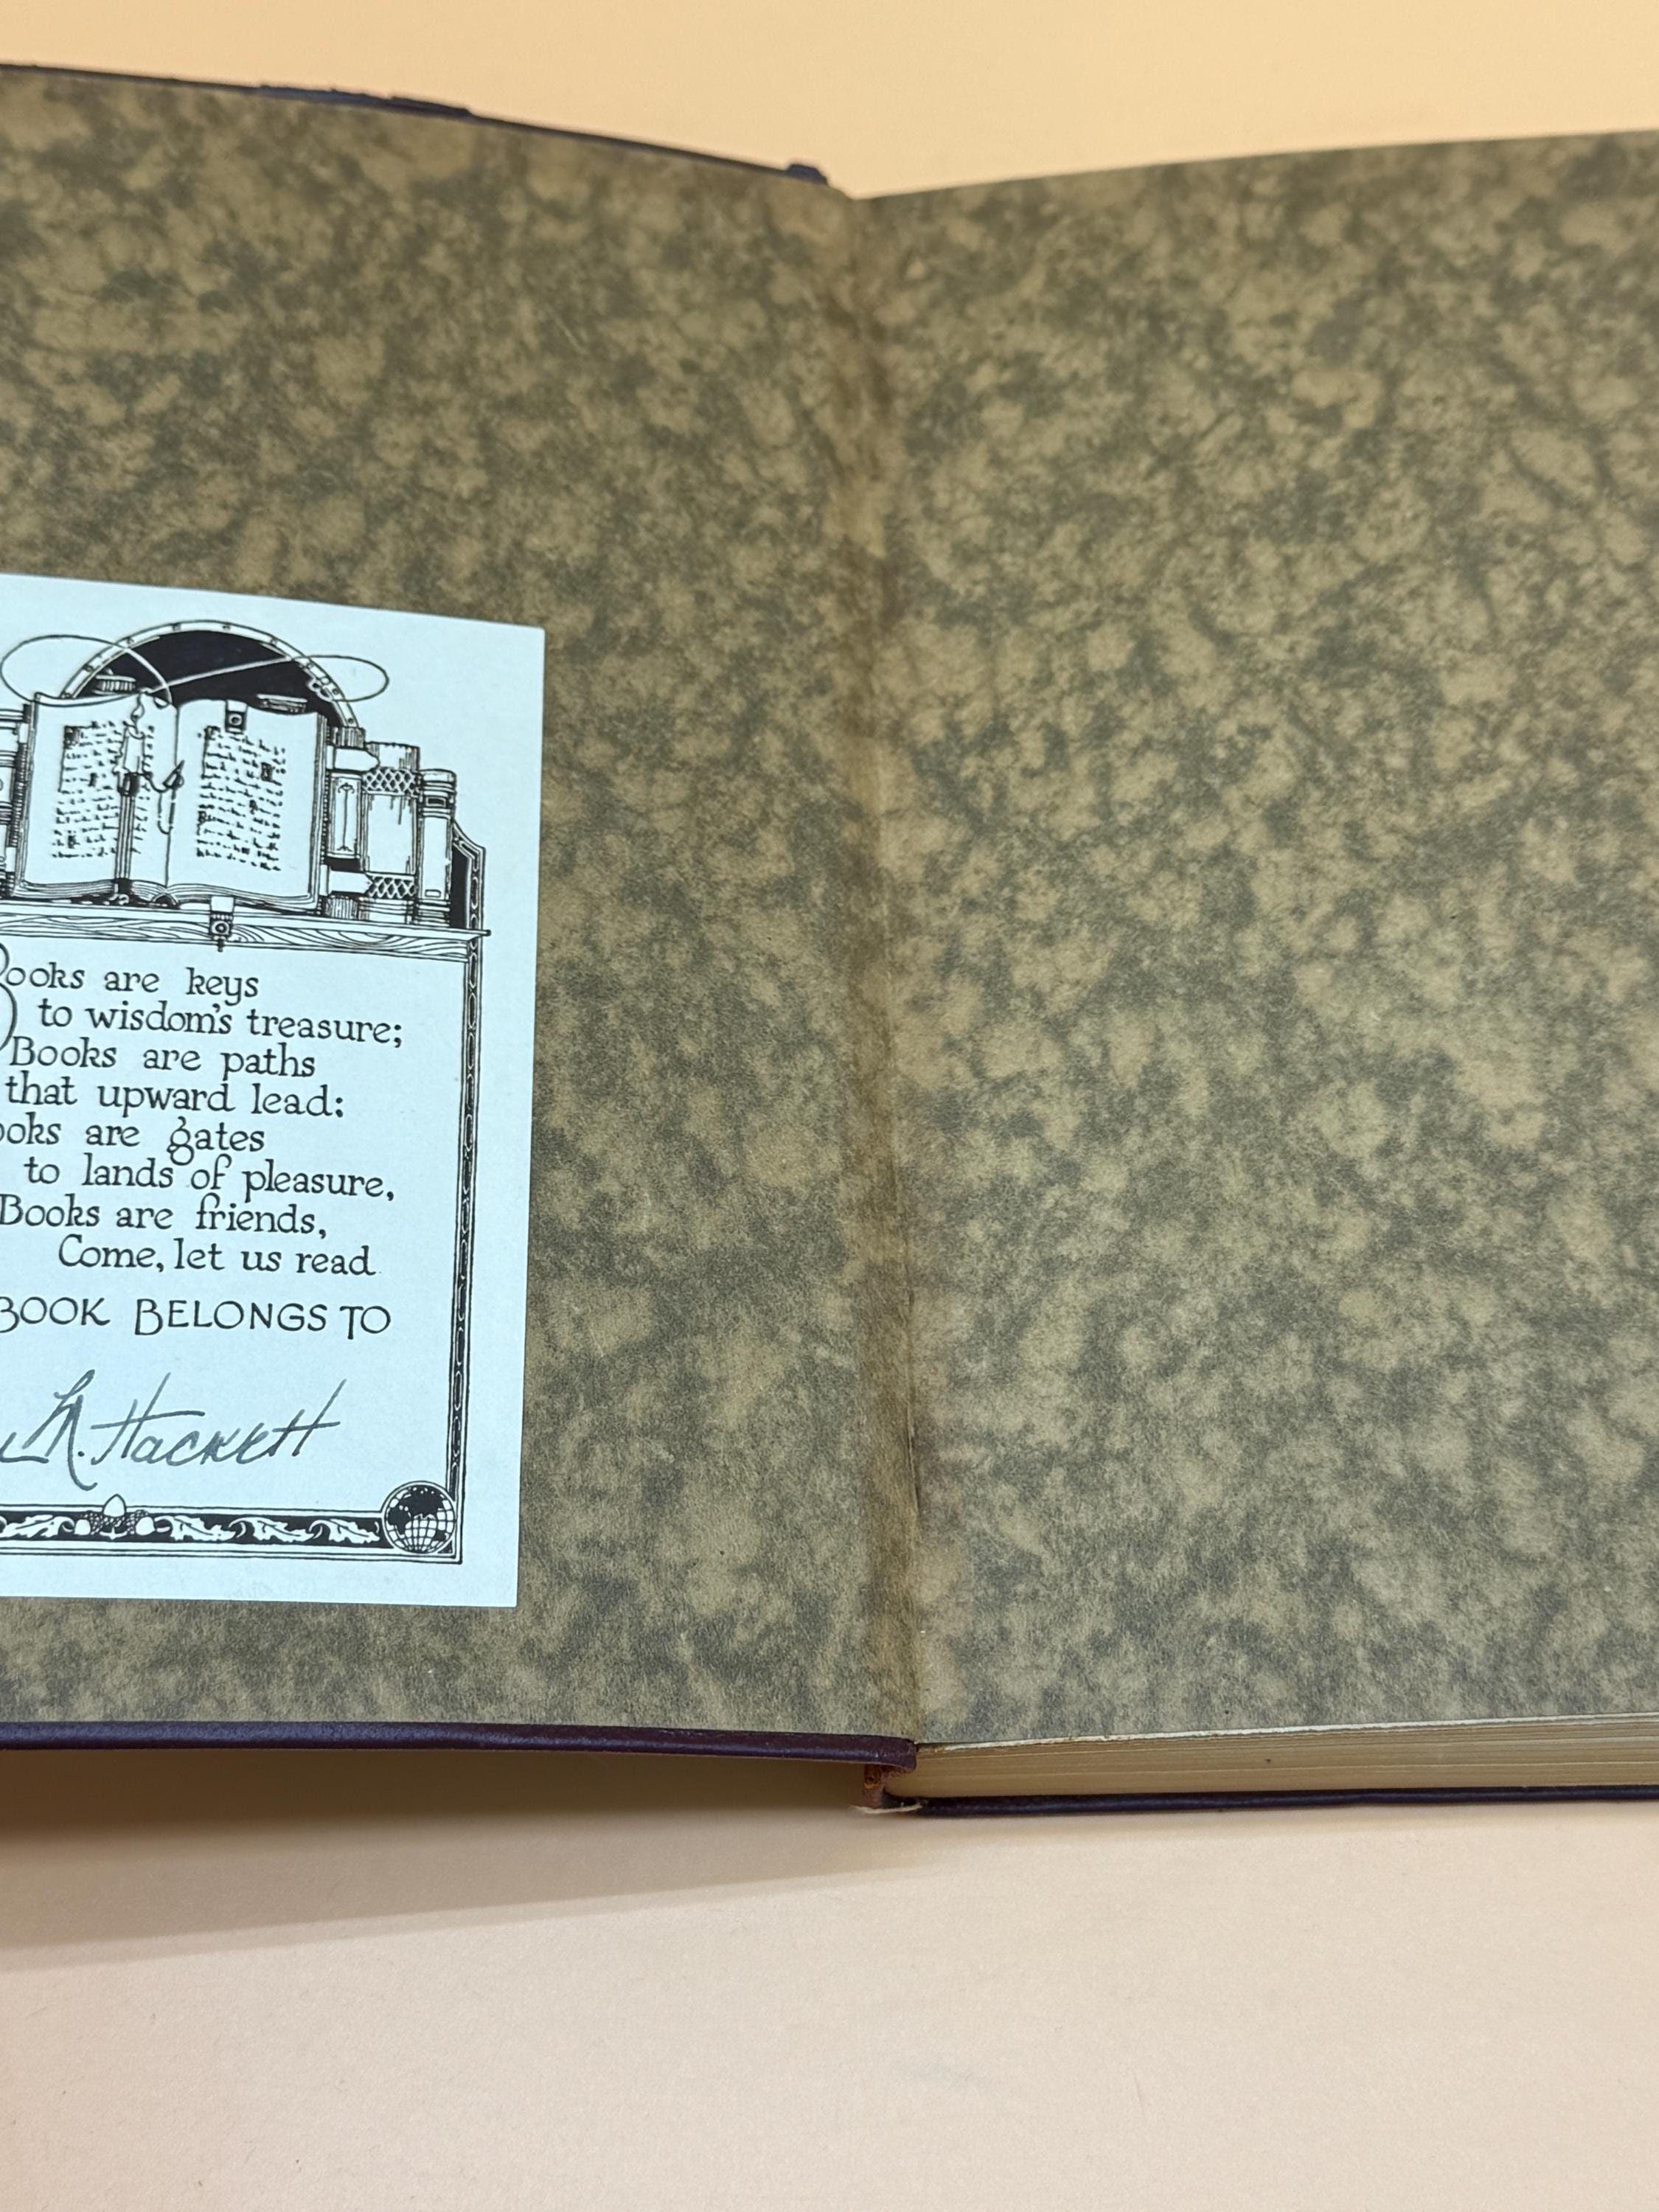 Books are keys
to wisdom's treasure;
Books are paths
that upward lead:
ooks are gates
to lands of pleasure,
Books are friends,
Come, let us read
BOOK BELONGS TO
M. Hackett